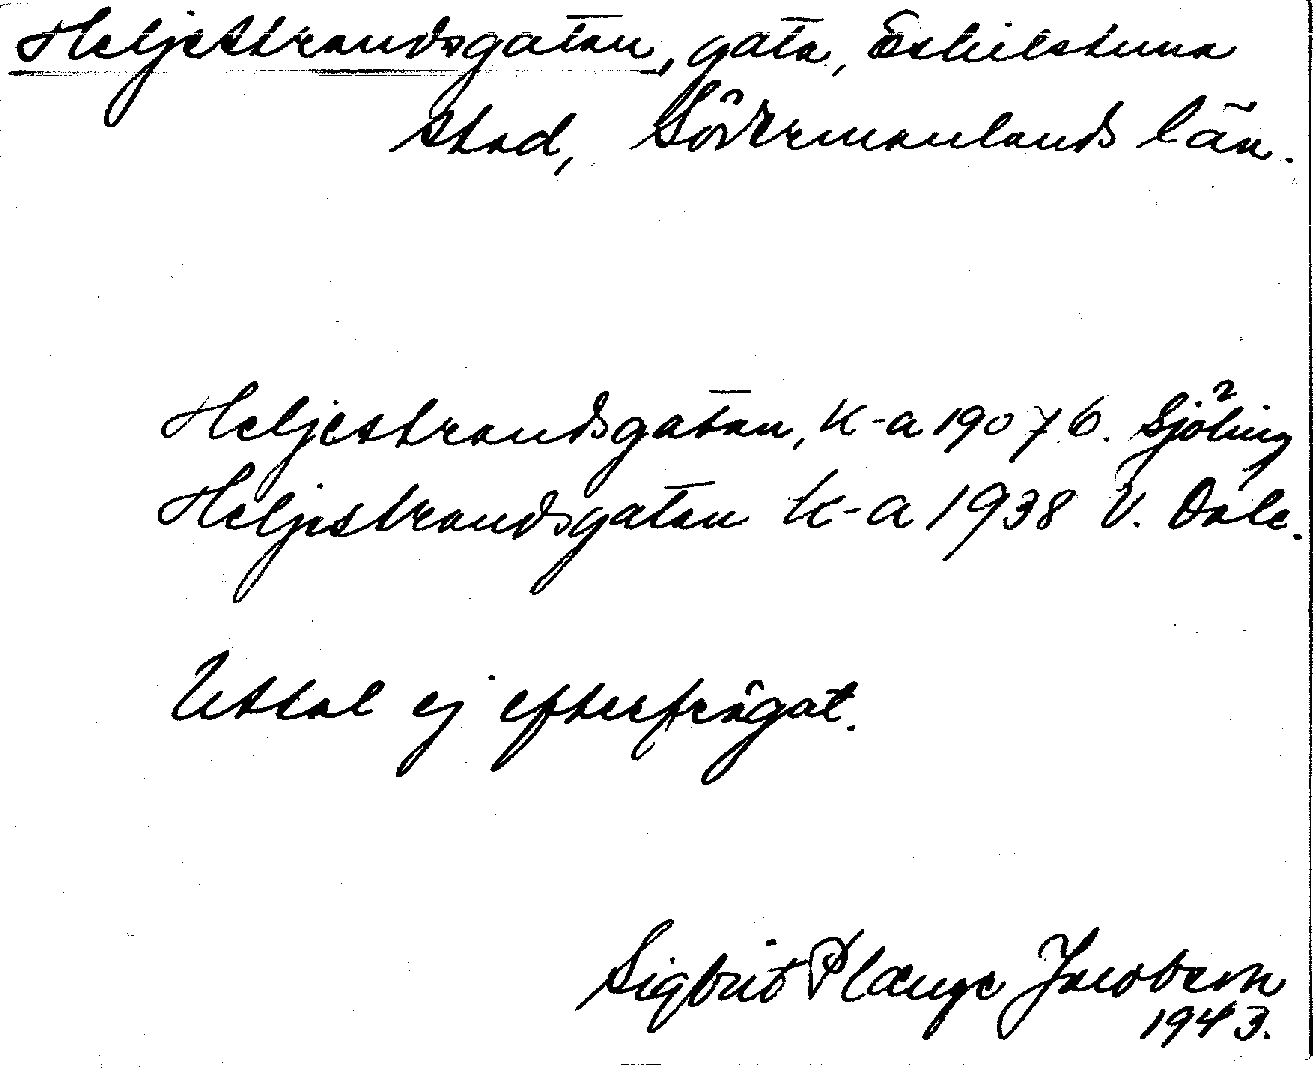 Heljestrandsgatan, gata, Eskilstuna
stad, Södermanlands län.
Heljestrandsgatan, K-a 1907 G. Sjöling
Heljestrandsgatan K-a 1938 V. Dale.
Uttal ej efterfrågat.
Sigbrit Plænge Jacobson
1943.